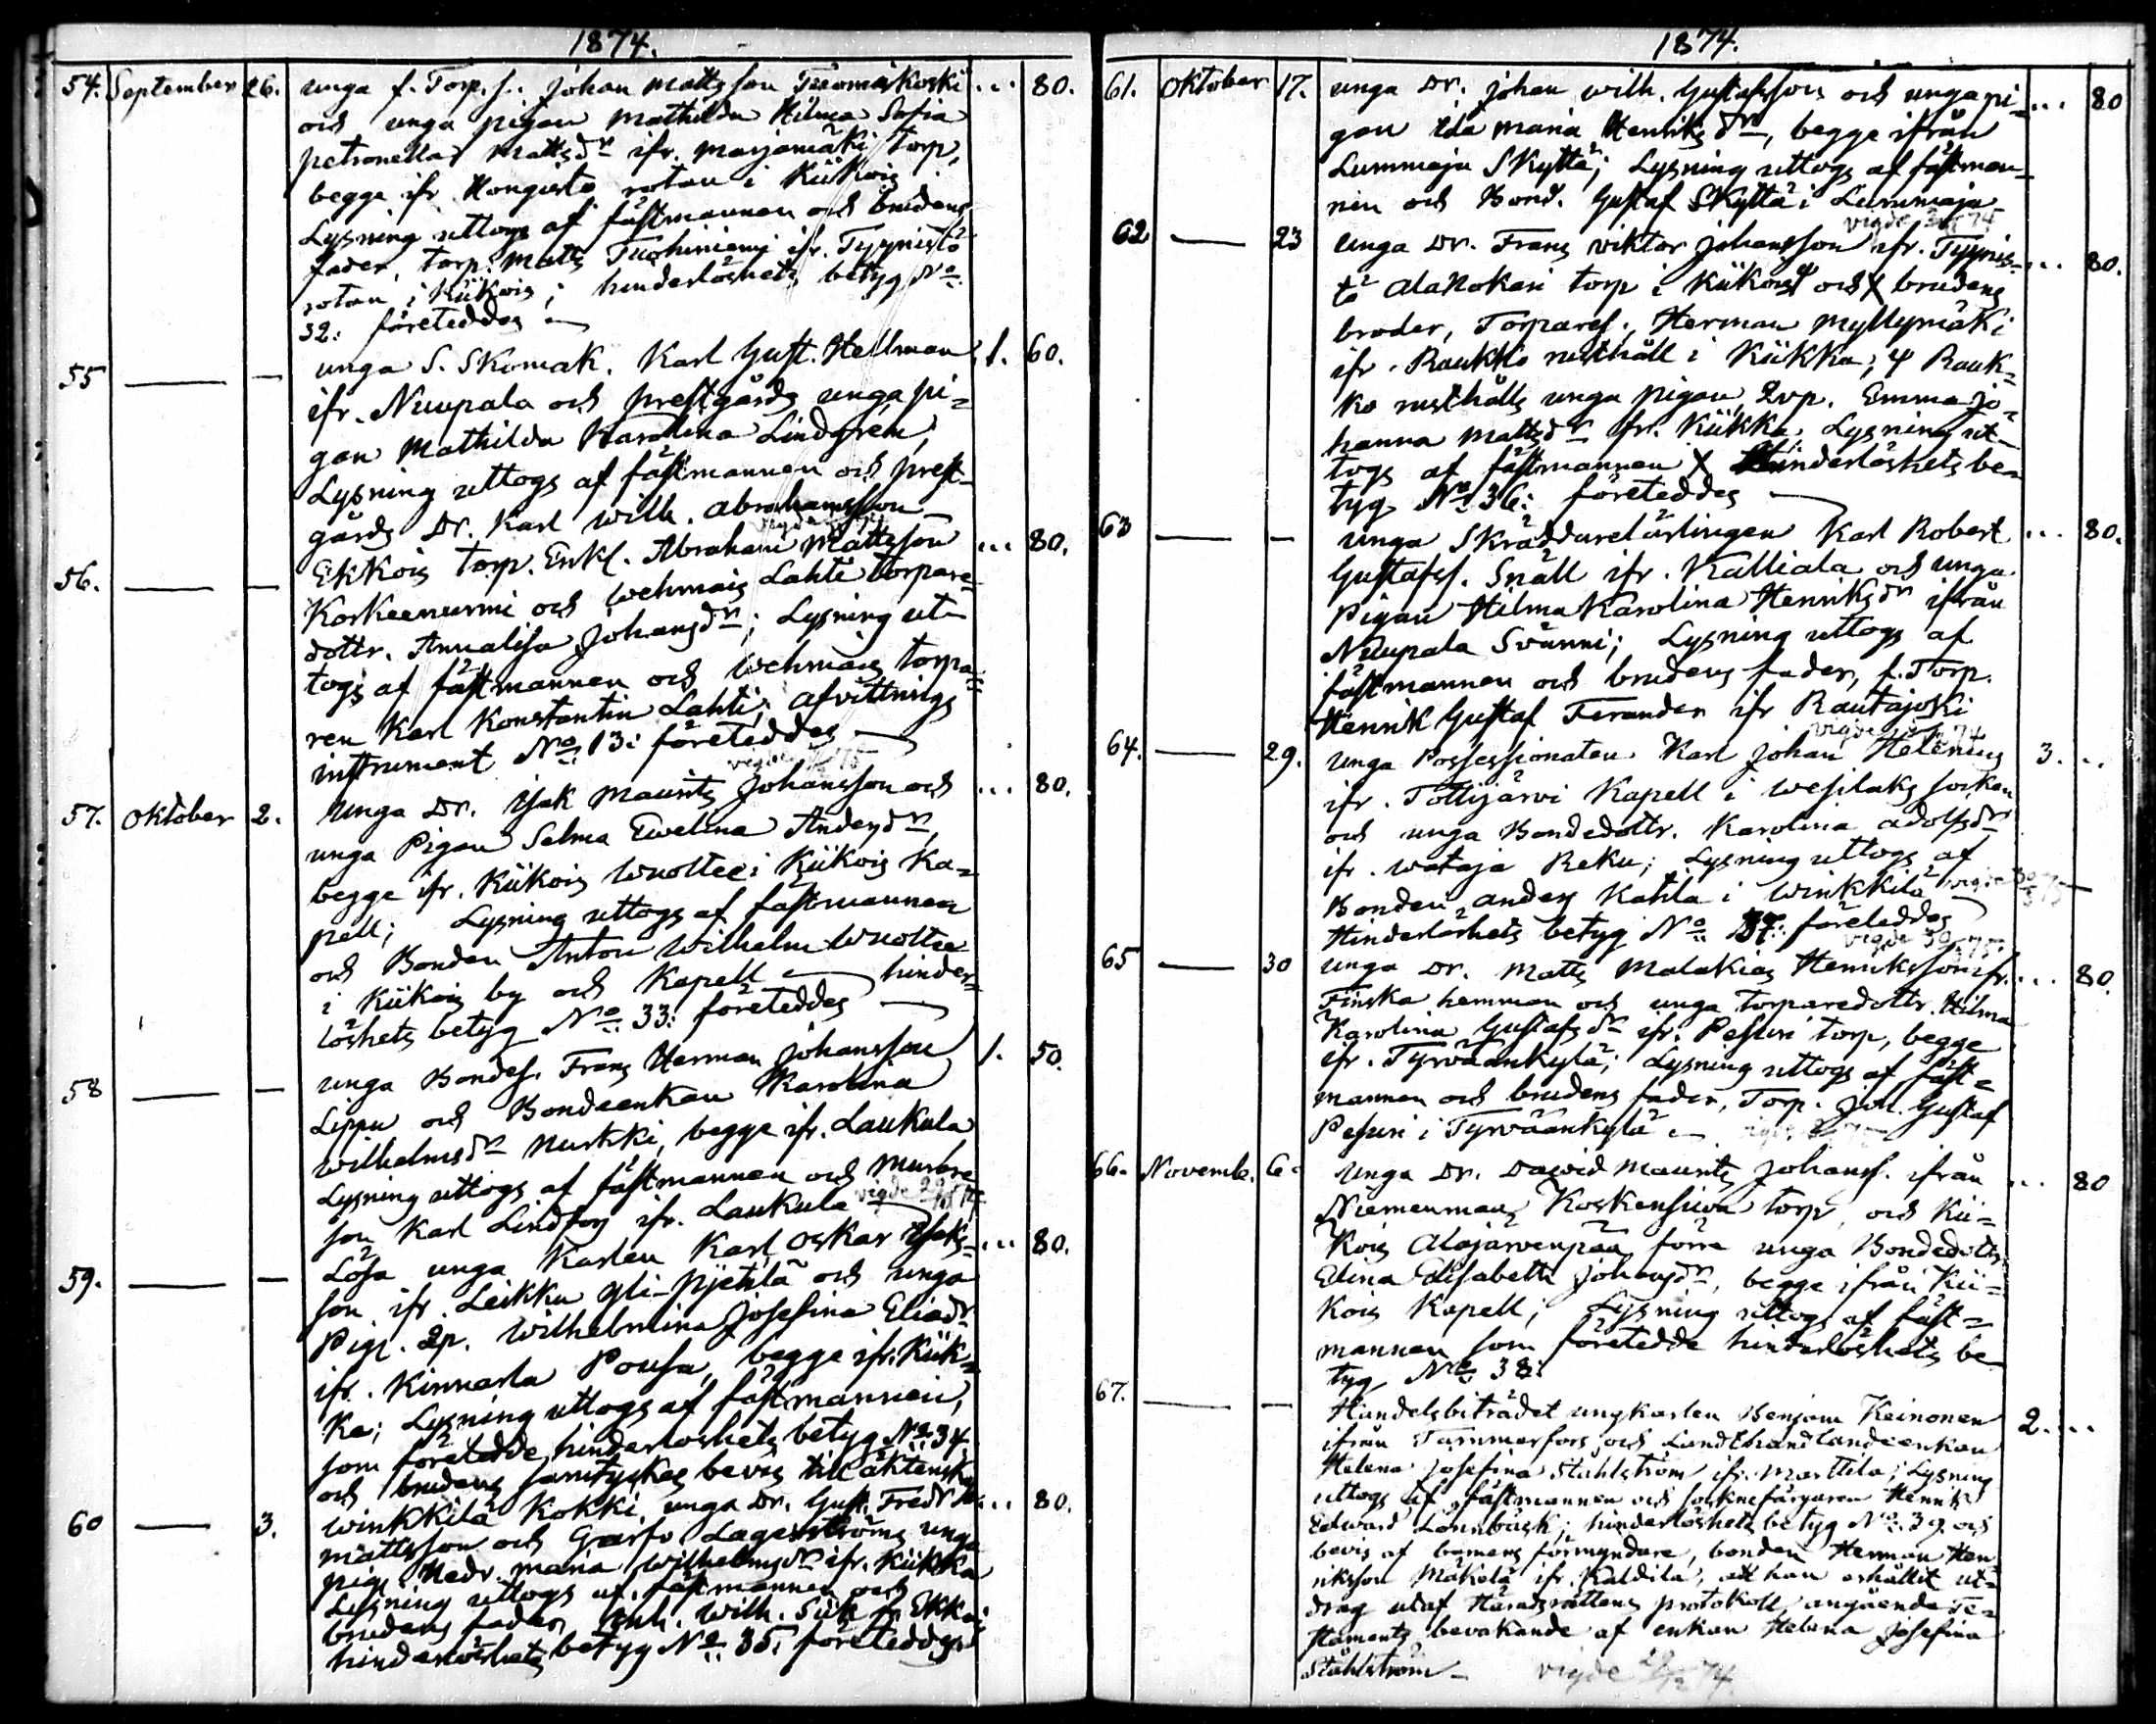 1874.
54. September 26. unga f. Torp. s. Johan Mattsson Tuomiskoski ... 80.
och unga pigan Mathilda Hilma Sofia
Petronella Mattsdr ifr. Marjamäki torp,
begge ifr. Hongisto rotan i Kiikois
Lysning uttogs af fästmannen och brudens
fader, torp. Matts Tuohiniemi ifr. Tyynistö
rotan i Kiikois; hinderlöshets betyg No
32: företeddes
55 — — unga S. Skomak. Karl Gust. Hellman 1. 60.
ifr. Nuupala och prestgårds unga pi=
gan Mathilda Karolina Lindgren;
Lysning uttogs af fästmannen och prest-
gårds Dr. Karl Wilh. Abrahamsson
56. — — Ekkois torp. Enkl. Abraham Mattsson ... 80.
Koskeenurmi och Wehmais Lahti torpare-
dottr. Annalisa Johansdr; Lysning ut-
togs af fästmannen och Wehmais torpa=
ren Karl Konstantin Lahti; afvittrings
instrument No 13: företeddes
57. Oktober 2. Unga Dr. Isak Maurits Johansson och ... 80.
unga Pigan Selma Ewelina Andersdr,
begge ifr. Kiikois Wuoltee i Kiikois Ka=
pell; Lysning uttogs af fästmannen
och Bonden Anton Wilhelm Wuoltee
i Kiikois by och Kapell — hinder=
löshets betyg No 33: företeddes —
58 — — unga Bondes. Frans Herman Johansson 1. 50.
Lippu och Bondeenkan Karolina
Wilhelmsdr Nurkki, begge ifr. Laukula
Lysning uttogs af fästmannen och Murare
son Karl Lindfors ifr. Laukula vigde
59. — — Lösa unga Karlen Karl Oskar Isaks= ... 80.
son ifr. Leikku Yli-Pjetilä och unga
Pig. 2p. Wilhelmina Josefina Eliasdr
ifr. Kinnarla Pousa, begge ifr. Kiik=
ka; Lysning uttogs af fästmannen,
som företedde hinderlöshets betyg No 34
och brudens samtyckes bevis till äktenskap
60 — 3. Winkkilä Kokki, unga Dr. Gust. Fredr. ... 80.
Mattsson och Gaffo Lagerströms unga
pig. Hedv. Maria Wilhelmsdr ifr. Kiikka
Lysning uttogs af fästmannen och
brudens fader, Inh. Wilh. ifr. Ekkois
hinderlöshets betyg No 35: företeddes
1874.
61. Oktober 17. unga Dr. Johan Wilh. Gustafsson och unga pi= ... 80
gan Ida Maria Henriksdr, begge ifrån
Lummaja Skyttä; Lysning uttogs af fästman=
nen och Bond. Gustaf Skyttä i Lummaja
vigde 74
62 — 23 Unga Dr. Frans Viktor Johansson ifr. Tyynis= ... 80.
tö Alanokari torp i Kiikois och brudens
broder, Torpares., Herman Myllymäki
ifr. Raukko rusthåll i Kiikka; Rauk=
ko rusthålls unga pigan, 2vp. Emma Jo=
hanna Mattsdr fr. Kiikka. Lysning ut-
togs af fästmannen X Hinderlöshets be=
tyg No 36: företeddes —
63 — — unga Skräddarelärlingen Karl Robert ... 80.
Gustafss. Snäll ifr. Kalliala och unga
Pigan Hilma Karolina Henriksdr ifrån
Nuupala Svänni; Lysning uttogs af
fästmannen och brudens fader, f. Torp.
Henrik Gustaf Ferander ifr Rautajoki
vigde 74
64. — 29. unga Possessionaten Karl Johan Helenius 3. ..
ifr. Tottijärvi Kapell i Wesilaks socken
och unga Bondedottr. Karolina Adolfsdr
ifr. Wataja Reku; Lysning uttogs af
Bonden Anders Kahla i Winkkilä vigde
Hinderlöshets betyg No 37: företeddes
vigde 75
65 — 30 unga Dr. Matts Malakias Henriksson ifr. ... 80.
Finska hemman och unga torparedottr. Hilma
Karolina Gustafsdr ifr. Pesuri torp, begge
ifr. Tyrväänkylä; Lysning uttogs af fäst=
mannen och brudens fader, Torp. Joh. Gustaf
Pesuri i Tyrväänkylä
66. Novemb. 6. Unga Dr. Dawid Maurits Johanss. ifrån ... 80
Niemenmaa Koskensuva torp och Kii=
kois Alajärvenpää förre unga Bondedottr.
Edina Elisabeth Johansdr, begge ifrån Kii=
kois Kapell; Lysning uttogs af fäst=
mannen som företedde hinderlöshets be
tyg No 38:
67. — — Handelsbiträdet ungkarlen Benjam Keinonen 2. ...
ifrån Tammerfors och Landthandlandeenkan
Helena Josefina Ståhlström ifr. Marttila; Lysning
uttogs af fästmannen och sockenfärgaren Henrik
Edward Lönnbäck; hinderlöshets betyg No 39. och
bevis af barnens förmyndare, bonden Herman Hen
riksson Mäkelä ifr. Kaldila, att han erhållit ut=
drag utaf Häradsrättens protokoll angående Te=
staments bevakande af enkan Helena Josefina
Ståhlström — vigde 29/12 74.